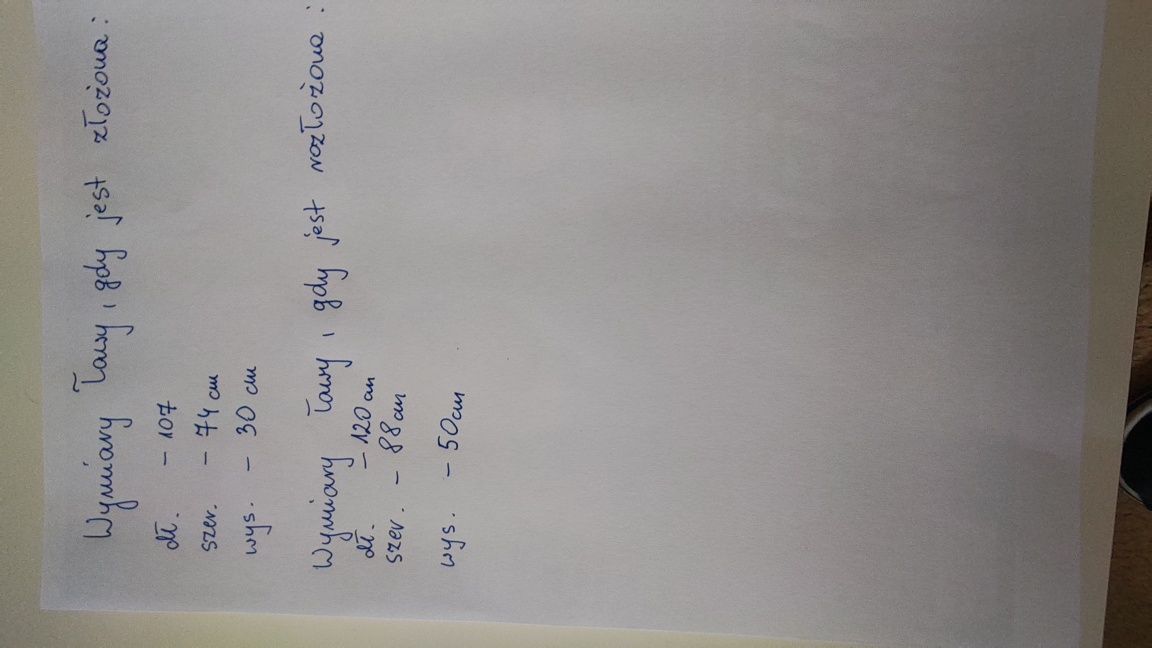 Wymiary ławy, gdy jest złożona:
dł. - 107
szer. - 74 cm
wys. - 30 cm
Wymiary ławy, gdy jest rozłożona:
dł. - 120 cm
szer. - 88 cm
wys. - 50 cm